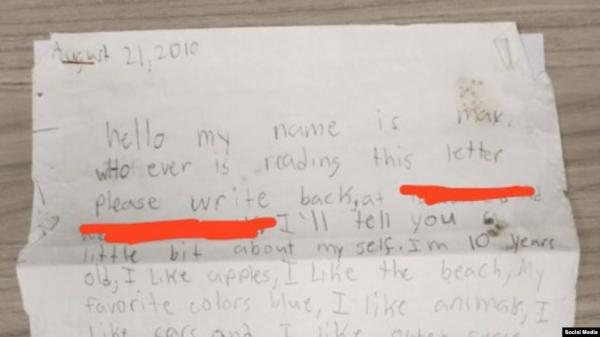 August 21, 2010
hello my name is max.
who ever is reading this letter
please write back, at
I'll tell you a
little bit about my self. I'm 10 years
old, I Like apples, I Like the beach, My
favorite colors blue, I like animals, I
like cars and I like outer space
Social Media